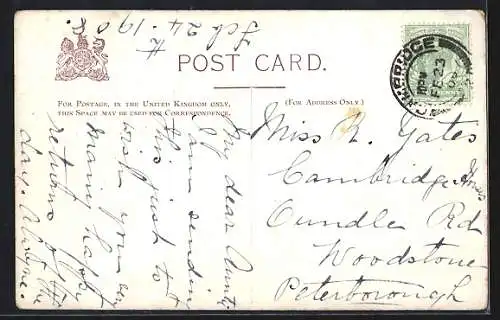 Feb 24th. 1908.
POST CARD.
FOR POSTAGE, IN THE UNITED KINGDOM ONLY,
THIS SPACE MAY BE USED FOR CORRESPONDENCE.
(FOR ADDRESS ONLY.)
My dear Aunty
I am sending
this just to
wish you very
many happy
returns of the
day.
Miss R. Yates
Cambridge House
Oundle Rd
Woodstone
Peterborough
FE 23